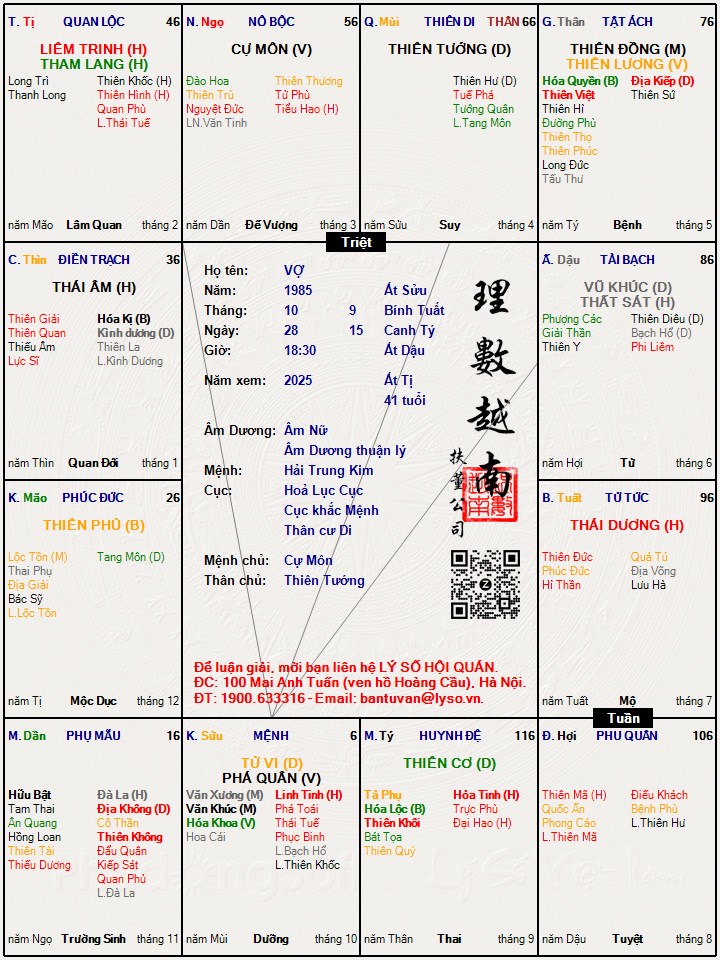 T. Tị QUAN LỘC 46
LIÊM TRINH (H)
THAM LANG (H)
Long Trì Thiên Khốc (H)
Thanh Long Thiên Hình (H)
Quan Phù
L.Thái Tuế
năm Mão Lâm Quan tháng 2
N. Ngọ NÔ BỘC 56
CỰ MÔN (V)
Đào Hoa Thiên Thương
Thiên Trù Tử Phù
Nguyệt Đức Tiểu Hao (H)
LN.Văn Tinh
năm Dần Đế Vượng tháng 3
Q. Mùi THIÊN DI THÂN 66
THIÊN TƯỚNG (D)
Thiên Hư (D)
Tuế Phá
Tướng Quân
L.Tang Môn
năm Sửu Suy tháng 4
G. Thân TẬT ÁCH 76
THIÊN ĐỒNG (M)
THIÊN LƯƠNG (V)
Hóa Quyền (B) Địa Kiếp (D)
Thiên Việt Thiên Sứ
Thiên Hỉ
Đường Phù
Thiên Thọ
Thiên Phúc
Long Đức
Tấu Thư
năm Tý Bệnh tháng 5
Triệt
C. Thìn ĐIỀN TRẠCH 36
THÁI ÂM (H)
Thiên Giải Hóa Kị (B)
Thiên Quan Kình dương (D)
Thiếu Âm Thiên La
Lực Sĩ L.Kình Dương
năm Thìn Quan Đới tháng 1
Họ tên: VỢ
Năm: 1985 Ất Sửu
Tháng: 10 9 Bính Tuất
Ngày: 28 15 Canh Tý
Giờ: 18:30 Ất Dậu
Năm xem: 2025 Ất Tị
41 tuổi
Âm Dương: Âm Nữ
Âm Dương thuận lý
Mệnh: Hải Trung Kim
Cục: Hoả Lục Cục
Cục khắc Mệnh
Thân cư Di
Mệnh chủ: Cự Môn
Thân chủ: Thiên Tướng
理數越南
扶董公司
Để luận giải, mời bạn liên hệ LÝ SỐ HỘI QUÁN.
ĐC: 100 Mai Anh Tuấn (ven hồ Hoàng Cầu), Hà Nội.
ĐT: 1900.633316 - Email: bantuvan@lyso.vn.
Ấ. Dậu TÀI BẠCH 86
VŨ KHÚC (D)
THẤT SÁT (H)
Phượng Các Thiên Diêu (D)
Giải Thần Bạch Hổ (D)
Thiên Y Phi Liêm
năm Hợi Tử tháng 6
K. Mão PHÚC ĐỨC 26
THIÊN PHỦ (B)
Lộc Tồn (M) Tang Môn (D)
Thai Phụ
Địa Giải
Bác Sỹ
L.Lộc Tồn
năm Tị Mộc Dục tháng 12
B. Tuất TỬ TỨC 96
THÁI DƯƠNG (H)
Thiên Đức Quả Tú
Phúc Đức Địa Võng
Hỉ Thần Lưu Hà
năm Tuất Mộ tháng 7
Tuần
M. Dần PHỤ MẪU 16
Hữu Bật Đà La (H)
Tam Thai Địa Không (D)
Ân Quang Cô Thần
Hồng Loan Thiên Không
Thiên Tài Đẩu Quân
Thiếu Dương Kiếp Sát
Quan Phủ
L.Đà La
năm Ngọ Trường Sinh tháng 11
K. Sửu MỆNH 6
TỬ VI (D)
PHÁ QUÂN (V)
Văn Xương (M) Linh Tinh (H)
Văn Khúc (M) Phá Toái
Hóa Khoa (V) Thái Tuế
Hoa Cái Phục Binh
L.Bạch Hổ
L.Thiên Khốc
năm Mùi Dưỡng tháng 10
M. Tý HUYNH ĐỆ 116
THIÊN CƠ (D)
Tả Phụ Hỏa Tinh (H)
Hóa Lộc (B) Trực Phù
Thiên Khôi Đại Hao (H)
Bát Tọa
Thiên Quý
năm Thân Thai tháng 9
Đ. Hợi PHU QUÂN 106
Thiên Mã (H) Điếu Khách
Quốc Ấn Bệnh Phù
Phong Cáo L.Thiên Hư
L.Thiên Mã
năm Dậu Tuyệt tháng 8